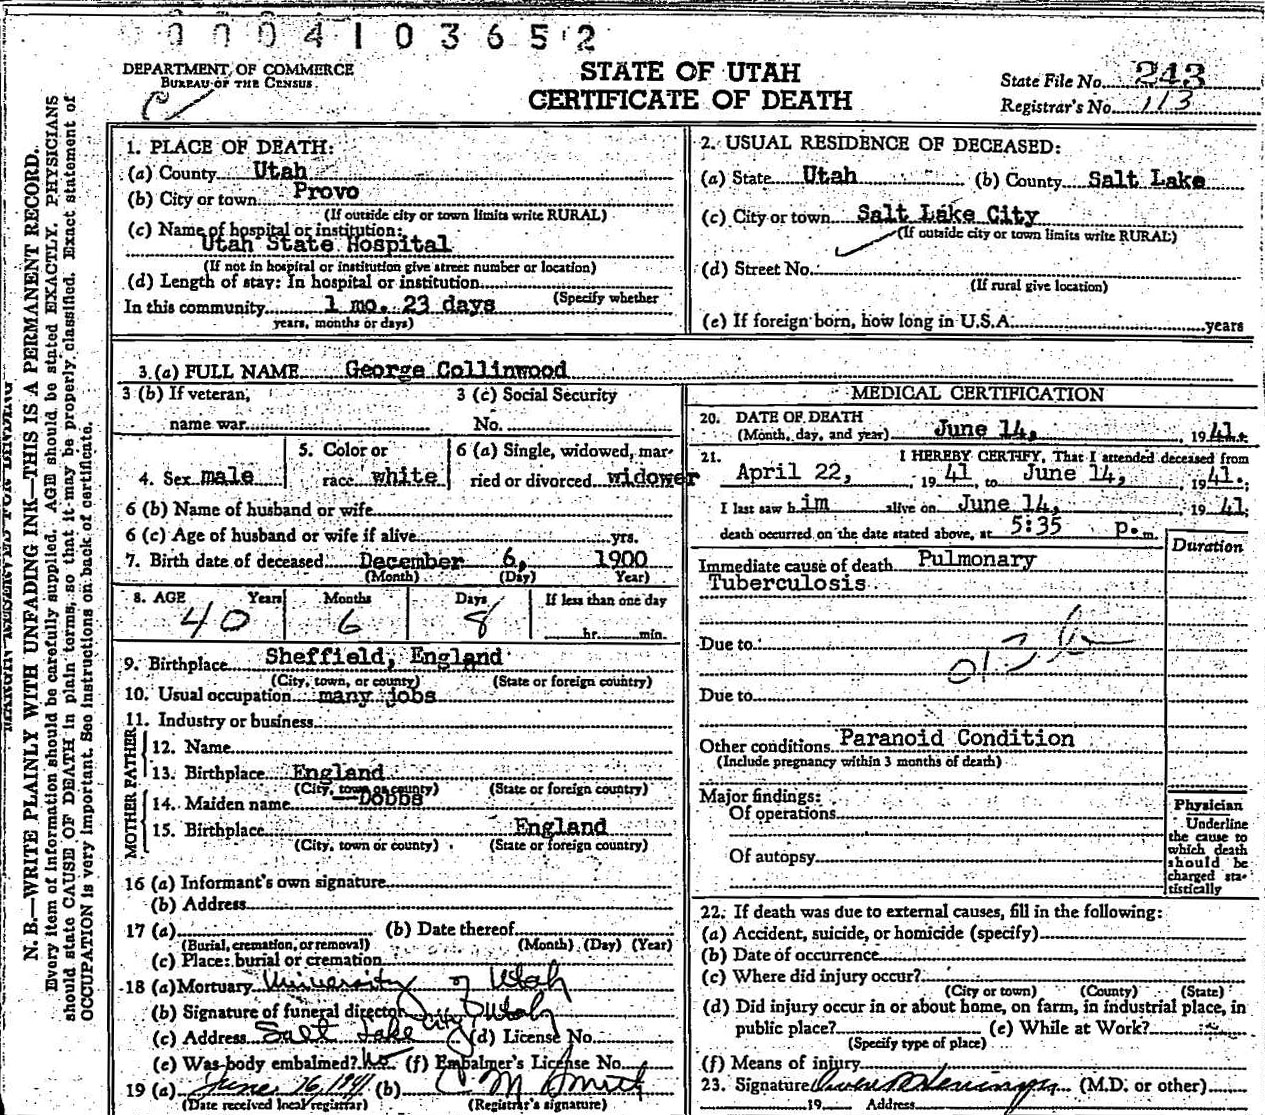 0004103652
DEPARTMENT OF COMMERCE
BUREAU OF THE CENSUS
STATE OF UTAH
CERTIFICATE OF DEATH
State File No. 243
Registrar's No. 113
N. B.—WRITE PLAINLY WITH UNFADING INK—THIS IS A PERMANENT RECORD.
Every item of information should be carefully supplied. AGE should be stated EXACTLY. PHYSICIANS
should state CAUSE OF DEATH in plain terms, so that it may be properly classified. Exact statement of
OCCUPATION is very important. See instructions on back of certificate.
1. PLACE OF DEATH:
(a) County Utah
(b) City or town Provo
(If outside city or town limits write RURAL)
(c) Name of hospital or institution:
Utah State Hospital
(If not in hospital or institution give street number or location)
(d) Length of stay: In hospital or institution
(Specify whether
In this community 1 mo. 23 days
years, months or days)
2. USUAL RESIDENCE OF DECEASED:
(a) State Utah (b) County Salt Lake
(c) City or town Salt Lake City
(If outside city or town limits write RURAL)
(d) Street No.
(If rural give location)
(e) If foreign born, how long in U.S.A. years
3. (a) FULL NAME George Collinwood
3 (b) If veteran, name war
3 (c) Social Security No.
4. Sex male
5. Color or race white
6 (a) Single, widowed, married or divorced widower
6 (b) Name of husband or wife
6 (c) Age of husband or wife if alive yrs.
7. Birth date of deceased December 6, 1900
(Month) (Day) Year)
8. AGE Years Months Days If less than one day
40 6 8 hr. min.
9. Birthplace Sheffield, England
(City, town, or county) (State or foreign country)
10. Usual occupation many jobs
11. Industry or business
FATHER
12. Name
13. Birthplace England
(City, town or county) (State or foreign country)
MOTHER
14. Maiden name —Dobbs
15. Birthplace England
(City, town or county) (State or foreign country)
16 (a) Informant's own signature
(b) Address
17 (a) (b) Date thereof
(Burial, cremation, or removal) (Month) (Day) (Year)
(c) Place: burial or cremation
18 (a) Mortuary University of Utah
(b) Signature of funeral director
(c) Address Salt Lake City Utah (d) License No.
(e) Was body embalmed? No (f) Embalmer's License No.
19 (a) June 16, 1941 (b) C M Smith
(Date received local registrar) (Registrar's signature)
MEDICAL CERTIFICATION
20. DATE OF DEATH
(Month, day, and year) June 14, 1941.
21. I HEREBY CERTIFY, That I attended deceased from
April 22, 1941, to June 14, 1941.;
I last saw him alive on June 14, 1941;
death occurred on the date stated above, at 5:35 p.m.
Duration
Immediate cause of death Pulmonary
Tuberculosis
Due to
Due to
Other conditions Paranoid Condition
(Include pregnancy within 3 months of death)
Major findings:
Of operations
Of autopsy
Physician
Underline
the cause to
which death
should be
charged sta-
tistically
22. If death was due to external causes, fill in the following:
(a) Accident, suicide, or homicide (specify)
(b) Date of occurrence
(c) Where did injury occur?
(City or town) (County) (State)
(d) Did injury occur in or about home, on farm, in industrial place, in
public place? (e) While at Work?
(Specify type of place)
(f) Means of injury
23. Signature (M.D. or other)
19 Address